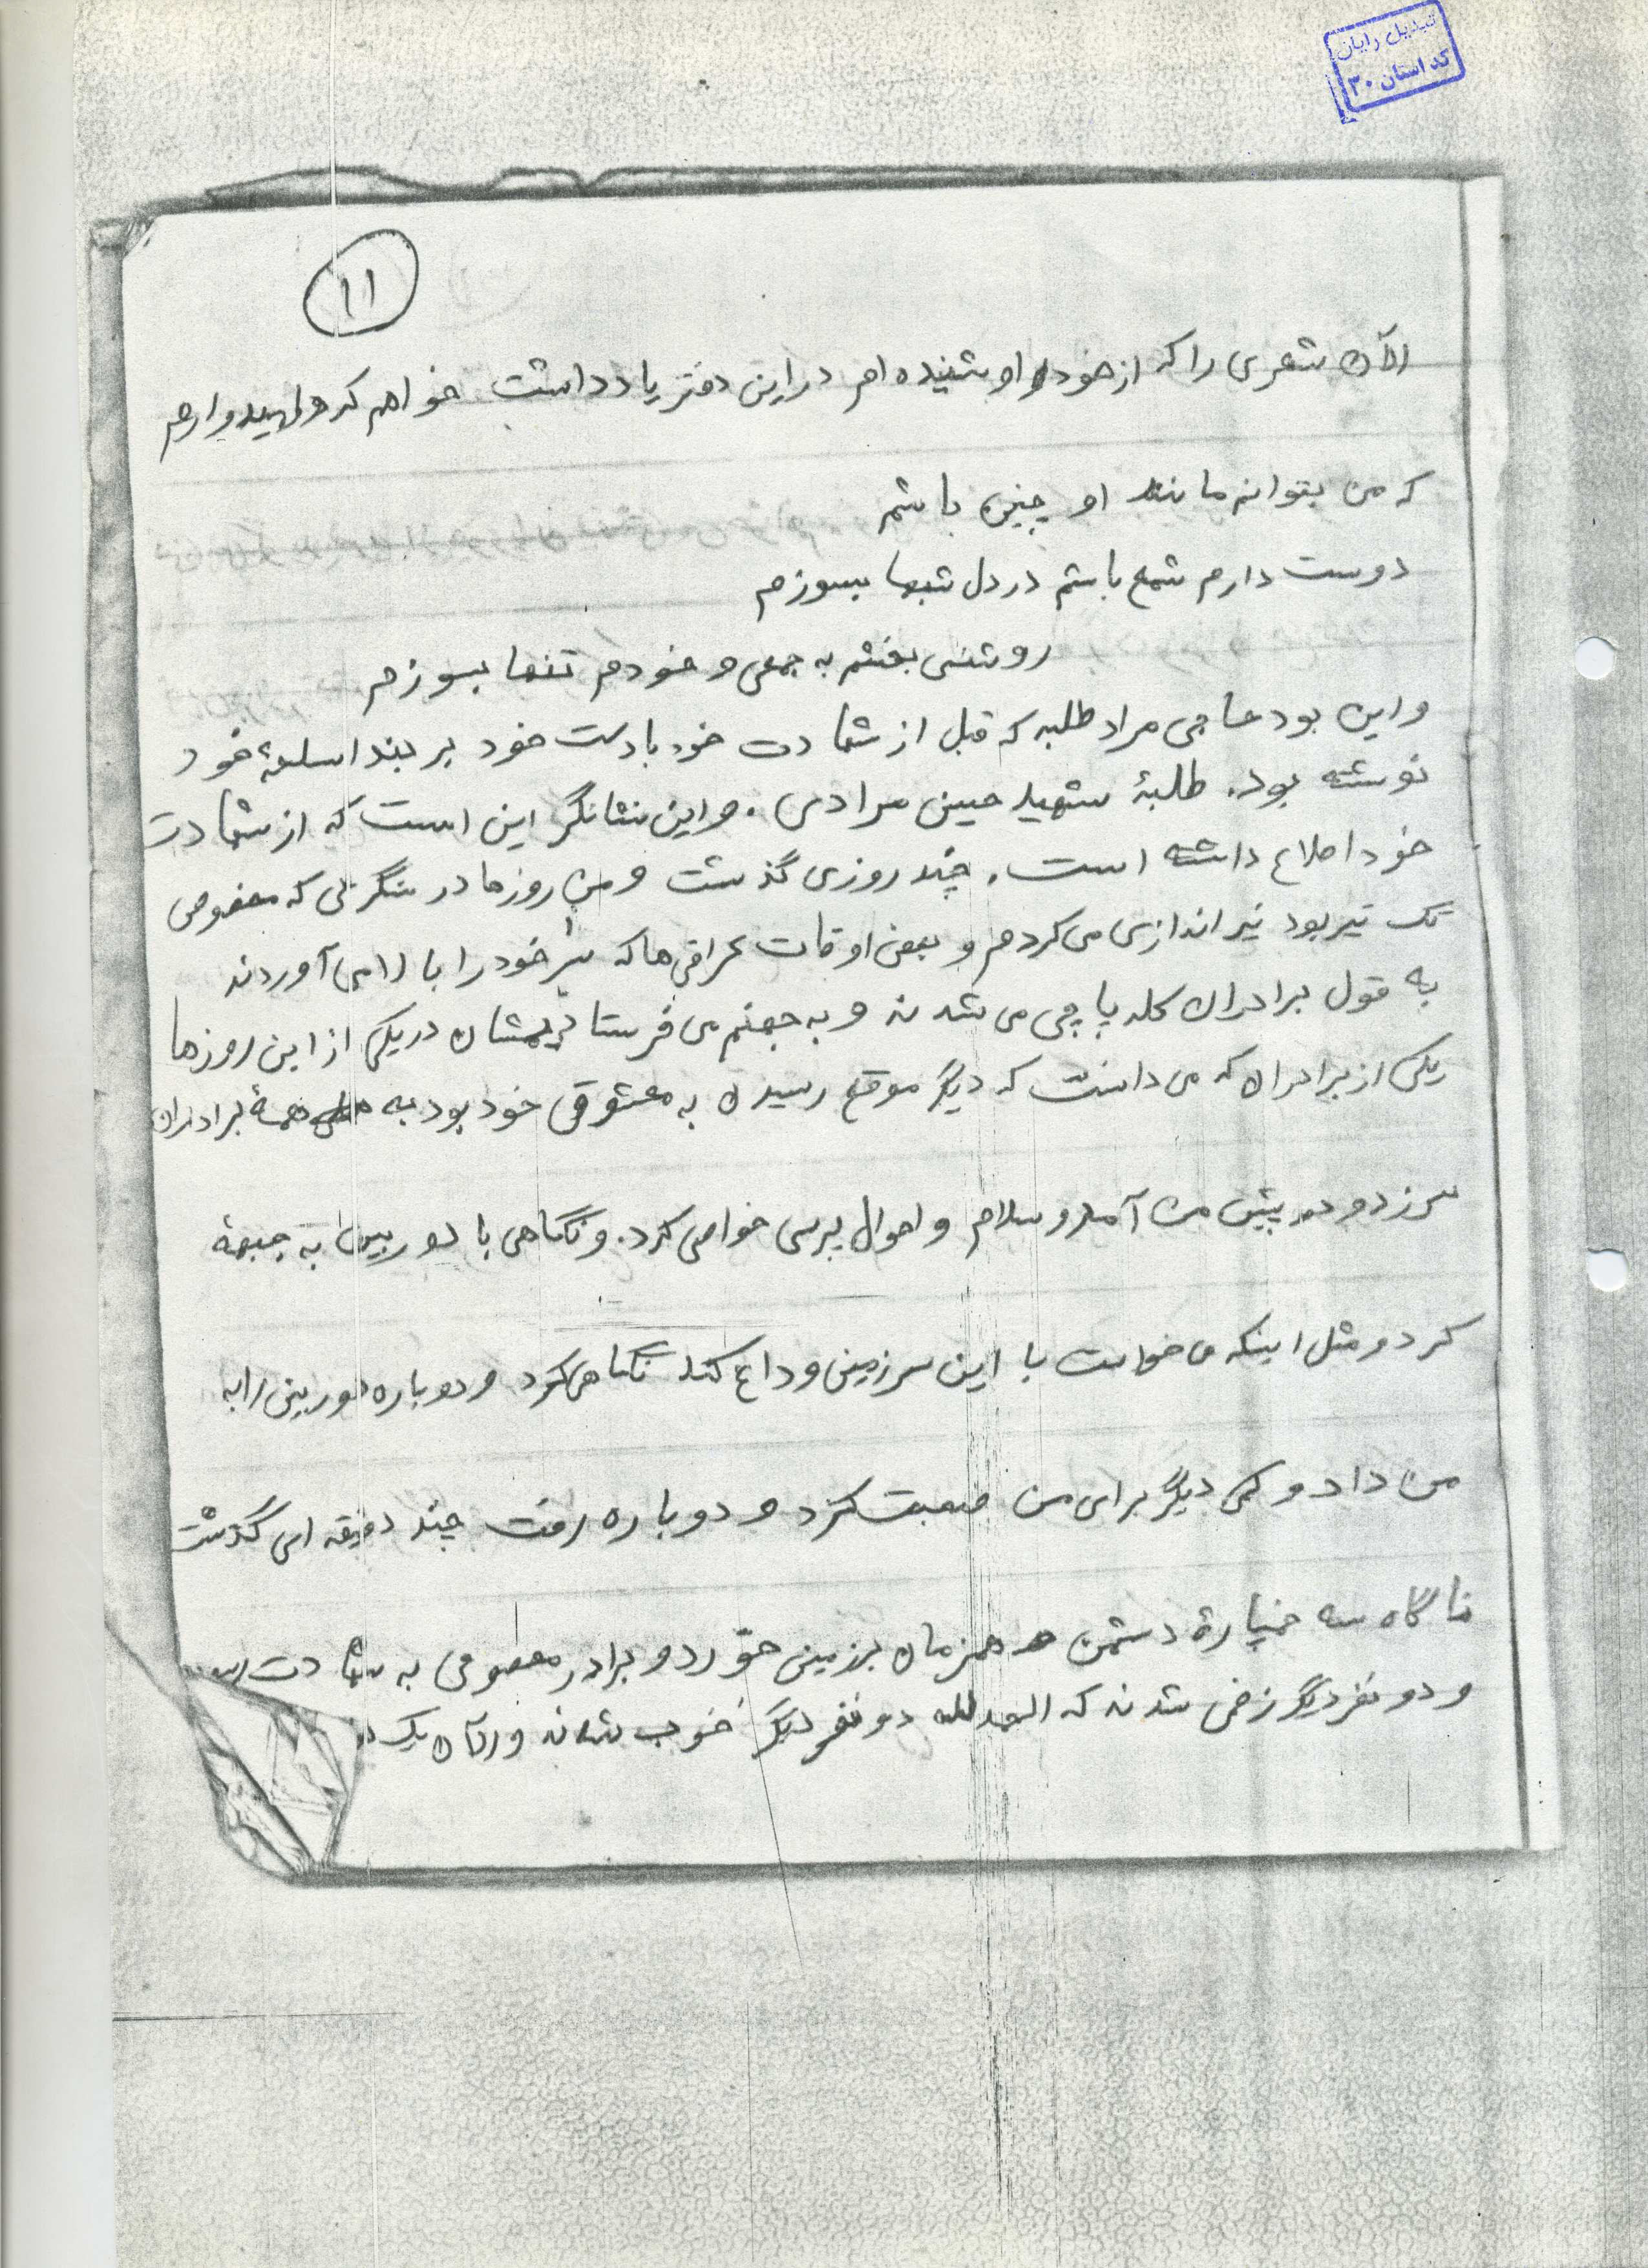 تبدیل رایان
کد استان ۳۰
۱۱
الآن شعری را که از خود او شنیده ام در این دفتر یادداشت خواهم کرد و امیدوارم
که من بتوانم مانند او چنین باشم
دوست دارم شمع باشم در دل شبها بسوزم
روشنی بخشم به جمعی و خودم تنها بسوزم
و این بود حاجی مراد طلبه که قبل از شهادت خود با دست خود بر بند اسلحۀ خود
نوشته بود. طلبۀ شهید حسین مرادی. و این نشانگر این است که از شهادت
خود اطلاع داشته است. چند روزی گذشت و من روزها در سنگری که مخصوص
تک تیر بود تیراندازی می کردم و بعضی اوقات عراقی ها که سر خود را بالا می آوردند
به قول برادران کله پاچی می شدند و به جهنم می فرستادیمشان در یکی از این روزها
یکی از برادران که می دانست که دیگر موقع رسیدن به معشوق خود بود به همۀ برادران
سر زد و پیش من آمد و سلام و احوال پرسی خواصی کرد. و نگاهی با دوربین به جبهۀ
کرد و مثل اینکه می خواست با این سرزمین وداع کند نگاهی کرد و دوباره دوربین را به
من داد و کمی دیگر برای من صحبت کرد و دوباره رفت چند دقیقه ای گذشت
ناگاه سه خمپارۀ دشمن همزمان بر زمین خورد و برادر معصومی به شهادت
و دو نفر دیگر زخمی شدند که الحمدلله دو نفر دیگر خوب شدند و الآن یک